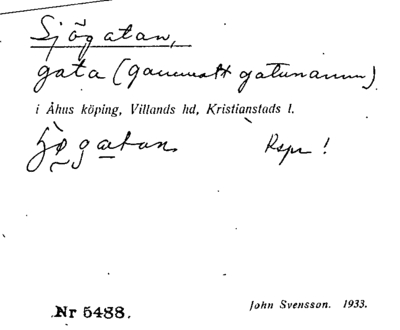 Sjögatan,
gata (gammalt gatunamn)
i Åhus köping, Villands hd, Kristianstads l.
gatan. Rspr!
Nr 5488.
John Svensson. 1933.